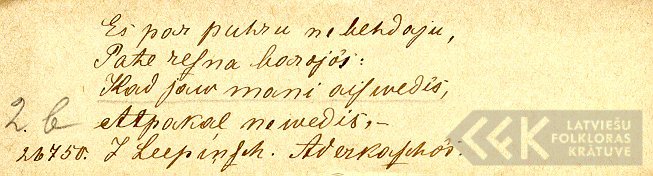 Es par puhru nebehdaju,
Pate resna barojos:
Kad jaw mani aiswedis,
2. b Atpakal newedis. –
26750. J Leepinsch. Aderkaschôs.
LATVIEŠU
FOLKLORAS
KRĀTUVE